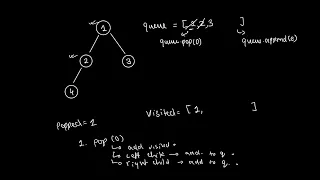 1
2
3
4
queue = [1, 2, 3 ]
queue.pop(0)
queue.append(0)
Popped = 1
Visited = [ 1, ]
1. pop (0)
add visited
left child → add to q.
right child → add to q.